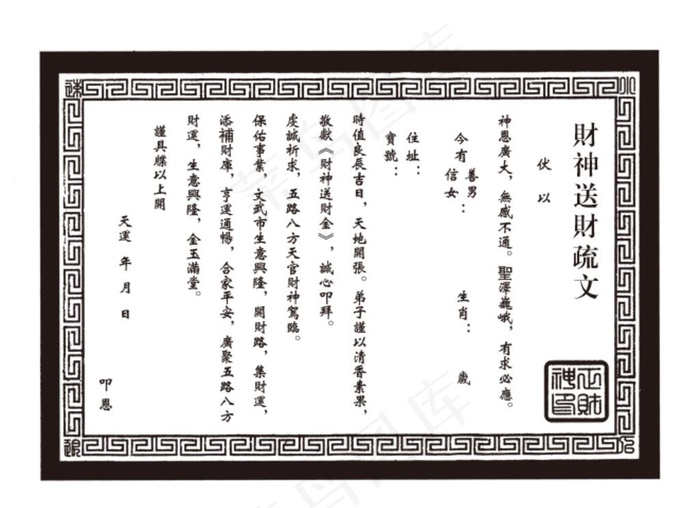 財神送財疏文
伏以
神恩廣大，無感不通。聖澤巍峨，有求必應。
今有善男信女： 生肖： 歲
住址：
寶號：
時值良辰吉日，天地開張。弟子謹以清香素果，
敬獻《財神送財金》，誠心叩拜。
虔誠祈求，五路八方天官財神駕臨。
保佑事業，文武市生意興隆，開財路，集財運，
添補財庫，亨運通暢，合家平安，廣聚五路八方
財運，生意興隆，金玉滿堂。
謹具牒以上聞
天運 年 月 日
叩恩
正財神印